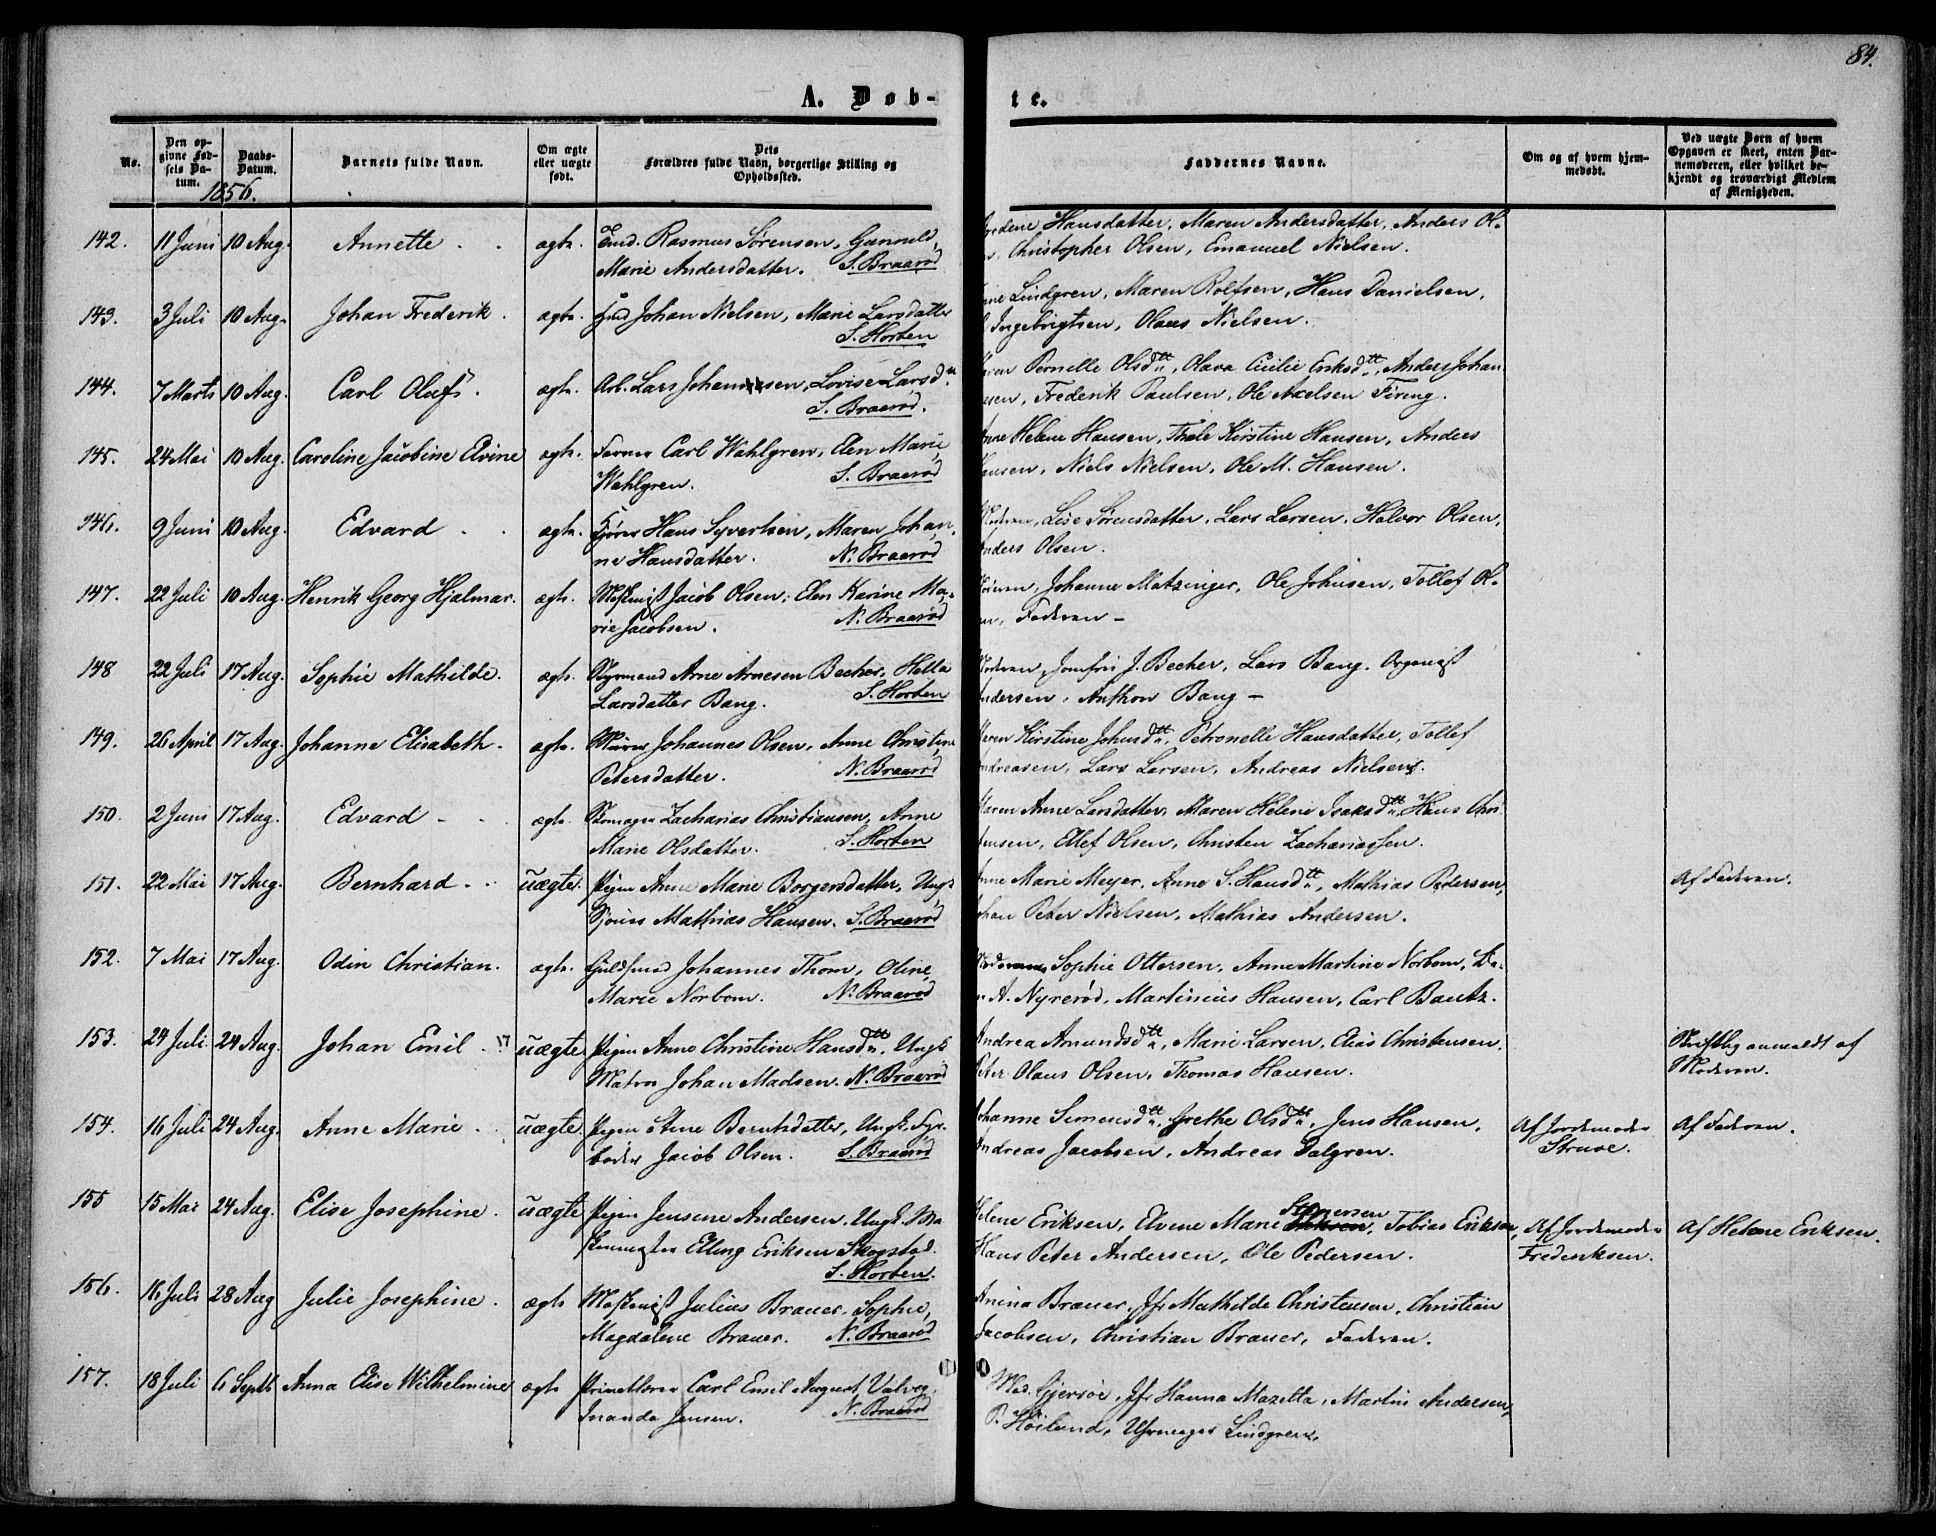 84.
A. Døb-
te.
No.
Den op-
givne Fød-
sels Da-
tum.
Daabs-
Datum.
1856.
Barnets fulde Navn.
Om ægte
eller uægte
født.
Dets
Forældres fulde Navn, borgerlige Stilling og
Opholdssted.
Faddernes Navne.
Om og af hvem hjem-
medøbt.
Ved uægte Børn af hvem
Opgaven er skeet, enten Bar-
nemoderen, eller hvilket be-
kjendt og troværdigt Medlem
af Menigheden.
142. 11 Juni 10 Aug. Annette ægte. Rasmus Sørensen, Gunnild
Marie Andersdatter. S. Braarød
Hansdatter, Maren Andersdatter, Anders Ol-
Christopher Olsen, Emanuel Nielsen.
143. 3 Juli 10 Aug. Johan Frederik. ægte. Johan Nielsen, Marie Larsdatter
S. Horten
Lindgren, Maren Rolfsen, Hans Danielsen,
Ingebrigtsen, Olaus Nielsen.
144. 7 Marts 10 Aug. Carl Oluf. ægte. Arb. Lars Johannesen, Lovise Larsd.
S. Braarød.
Pernelle Olsdtt., Olava Cicilie Eriksdtt., Anders Johan
sen, Frederik Paulsen, Ole Axelsen Firing.
145. 24 Mai 10 Aug. Caroline Jacobine Elvine ægte. Farver Carl Wahlgren, Elen Marie
Wahlgren. S. Braarød
Helene Hansen, Thale Kirstine Hansen, Anders
Hansen, Niels Nielsen, Ole M. Hansen.
146. 9 Juni 10 Aug. Edvard ægte. Hans Syvertsen, Maren Johan-
ne Hansdatter. N. Braarød
Lise Sørensdatter, Lars Larsen, Halvor Olsen,
Anders Olsen.
147. 22 Juli 10 Aug. Henrik Georg Hjalmar. ægte. Maskinist Jacob Olsen, Elen Karine Ma-
rie Jacobsen. N. Braarød
Johanne Matzinger, Ole Johnsen, Tollef Ol-
Faderen –
148 22 Juli 17 Aug. Sophie Mathilde. ægte. Styrmand Arne Arnesen Becher, Hella
Larsdatter Bang. S. Horten
Moderen, Jomfru J. Becher, Lars Bang, Organist
Andersen, Anthon Bang –
149. 26 April 17 Aug. Johanne Elisabeth. ægte. Murer Johannes Olsen, Anne Christine
Petersdatter. N. Braarød
Maren Kirstine Johnsdtt., Petronelle Hansdatter, Tollef
Andreasen, Lars Larsen, Andreas Nielsen.
150. 2 Juni 17 Aug. Edvard ægte. Zacharias Christiansen, Anne
Marie Olsdatter. S. Horten
Maren Anne Larsdatter, Maren Helene Isaksdtt., Hans Chri-
stensen, Ellef Olsen, Christen Zachariassen.
151. 22 Mai 17 Aug. Bernhard uægte. Pigen Anne Marie Borgersdatter, Ungk.
Mathias Hansen. S. Braarød
Anne Marie Meyer, Anne S. Hansdtt., Mathias Pedersen,
Johan Peter Nielsen, Mathias Andersen.
Af Faderen.
152. 7 Mai 17 Aug. Odin Christian. ægte. Guldsmed Johannes Thom, Oline
Marie Norbom. N. Braarød
Sophie Ottersen, Anne Martine Norbom, La-
A. Nyrerød, Martinius Hansen, Carl Bautz.
153. 24 Juli 24 Aug. Johan Emil uægte Pigen Anne Christine Hansdtt., Ungk.
Matros Johan Madsen. N. Braarød
Andrea Amundsdtt., Marie Larsen, Elias Christensen,
Peter Olaus Olsen, Thomas Hansen.
Skriftlig anmeldt af
Moderen.
154. 16 Juli 24 Aug. Anne Marie uægte Pigen Stine Berntsdatter, Ungk. Fyr-
bøder Jacob Olsen. S. Braarød
Johanne Simensdtt., Grethe Olsdtt., Jens Hansen,
Andreas Jacobsen, Andreas Dalgren.
Af Jordemoder
Struve.
Af Faderen.
155 15 Mai 24 Aug. Elise Josephine. uægte Pigen Jensine Andersen, Ungk. Ma
Elling Eriksen Skogstad.
S. Horten.
Helene Eriksen, Elvene Marie Stenersen, Tobias Eriksen,
Hans Peter Andersen, Ole Pedersen.
Af Jordemoder
Frederiksen.
Af Helene Eriksen.
156. 16 Juli 28 Aug Julie Josephine. ægte Maskinist Julius Brauer, Sophie
Magdalene Brauer. N. Braarød
Anina Brauer, Jfr Mathilde Christensen, Christian
Jacobsen, Christian Brauer, Faderen.
157. 18 Juli 6 Septb Anna Elise Wilhelmine ægte Carl Emil August, Valveg.
Inanda Jensen. N. Braarød
Mad. Gjersøe, Jfr Hanna Mazetta, Martin Andersen,
P. Høilund, Uhrmager Lindgren.